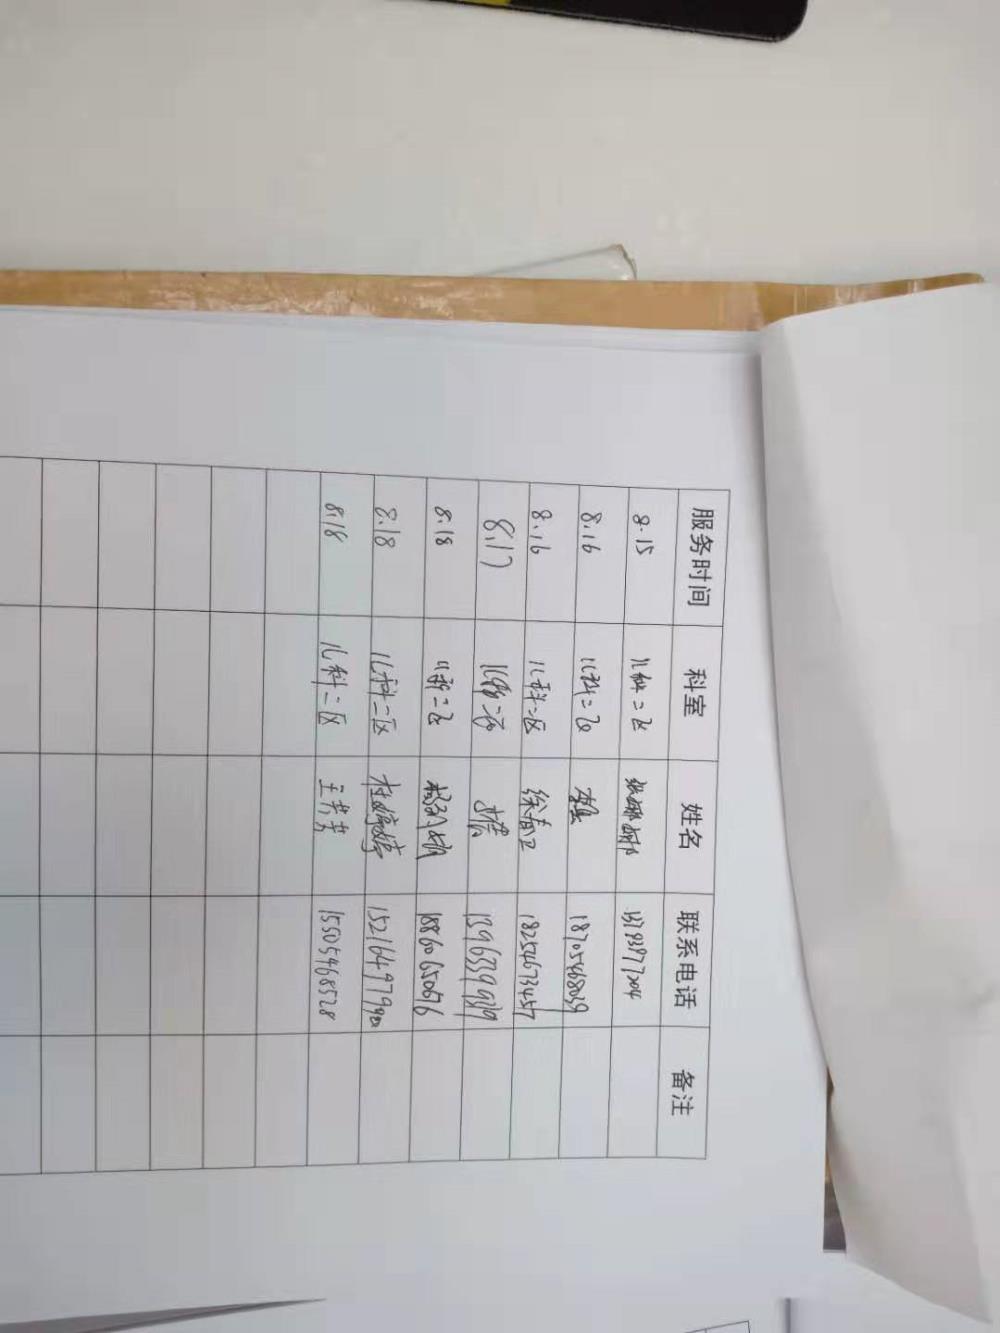 服务时间 科室 姓名 联系电话 备注
8.15 儿科二区 13793977204
8.16 儿科二区 18705468039
8.16 儿科二区 徐春卫 18254673457
8.17 儿科二区
8.18 儿科二区 18860650676
8.18 儿科二区 杜婷婷
8.18 儿科二区 王芳芳 15505468528